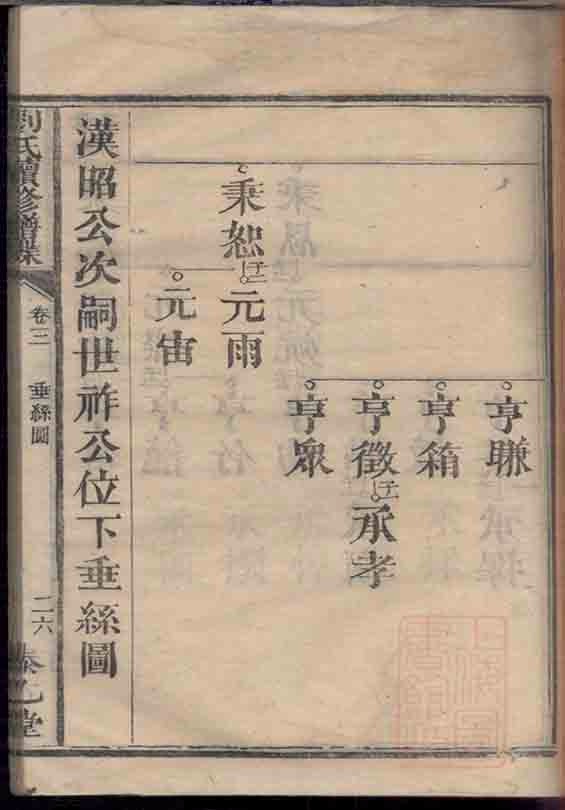 亨賺
亨箱
亨徵生承孝
亨眾
秉恕生元雨
元宙
漢昭公次嗣世祚公位下垂絲圖
劉氏續修譜牒
卷三
垂絲圖
二六